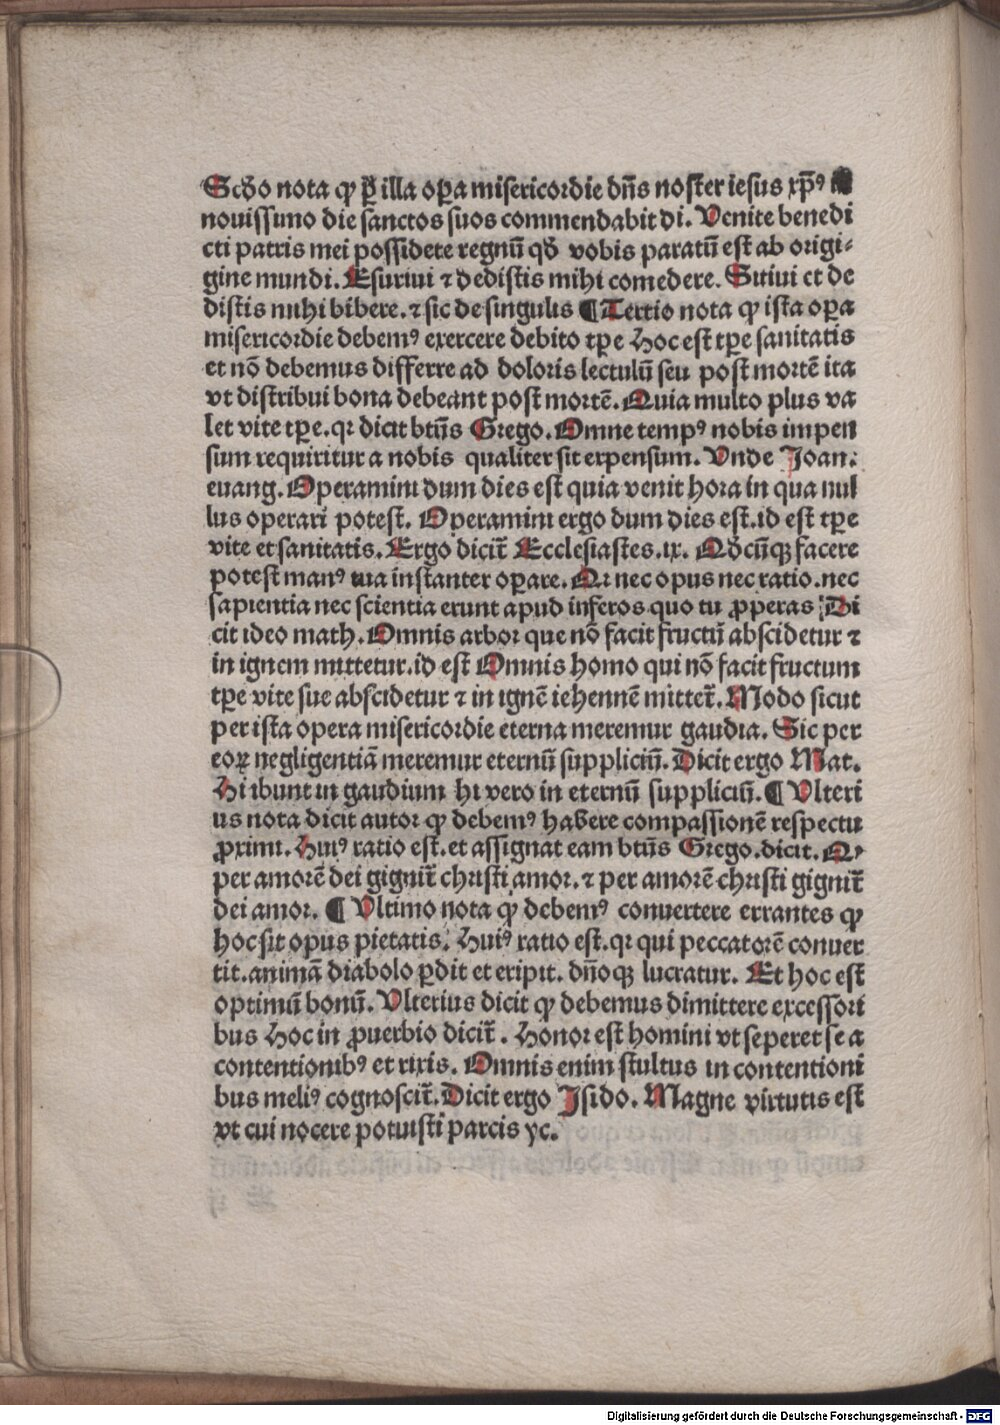 Scďo nota ꝙ ꝑ illa oꝑa misericordie dn̄s noster iesus xp̄ꝰ
nouissimo die sanctos suos commendabit di. Venite benedi
cti patris mei possidete regnū qď vobis paratū est ab origi-
gine mundi. Esuriui ⁊ dedistis mihi comedere. Sitiui et de
distis mihi bibere. ⁊ sic de singulis ¶ Tertio nota ꝙ ista oꝑa
misericordie debemꝰ exercere debito tꝑe Hoc est tꝑe sanitatis
et nō debemus differre ad doloris lectulū seu post mortē ita
vt distribui bona debeant post mortē. Quia multo plus va
let vite tꝑe. qꝛ dicit btūs Grego. Omne tempꝰ nobis impen
sum requiritur a nobis qualiter sit expensum. Vnde Joan.
euang. Operamini dum dies est quia venit hora in qua nul
lus operari potest. Operamini ergo dum dies est. id est tꝑe
vite et sanitatis. Ergo dicit̄ Ecclesiastes. ix. Qďcūqꝫ facere
potest manꝰ tua instanter oꝑare. Qꝛ nec opus nec ratio. nec
sapientia nec scientia erunt apud inferos quo tu ꝓperas Di
cit ideo math. Omnis arbor que nō facit fructū abscidetur ⁊
in ignem mittetur. id est Omnis homo qui nō facit fructum
tꝑe vite sue abscidetur ⁊ in ignē iehennē mittet̄. Modo sicut
per ista opera misericordie eterna meremur gaudia. Sic per
eoꝝ negligentiā meremur eternū suppliciū. Dicit ergo Mat.
Hi ibunt in gaudium hi vero in eternū suppliciū. ¶ Vlteri
us nota dicit autor ꝙ debemꝰ habere compassionē respectu
ꝓximi. Huiꝰ ratio est. et assignat eam btūs Grego. dicit. Q,
per amorē dei gignit̄ christi amor. ⁊ per amorē christi gignit̄
dei amor. ¶ Vltimo nota ꝙ debemꝰ conuertere errantes ꝙ
hoc sit opus pietatis. Huiꝰ ratio est. qꝛ qui peccatorē conuer
tit. animā diabolo ꝑdit et eripit. dn̄oqꝫ lucratur. Et hoc est
optimū bonū. Vlterius dicit ꝙ debemus dimittere excessori
bus Hoc in ꝓuerbio dicit̄. Honor est homini vt seperet se a
contentionibꝰ et rixis. Omnis enim stultus in contentioni
bus meliꝰ cognoscit̄. Dicit ergo Jsido. Magne virtutis est
vt cui nocere potuisti parcis ⁊c.
Digitalisierung gefördert durch die Deutsche Forschungsgemeinschaft - DFG